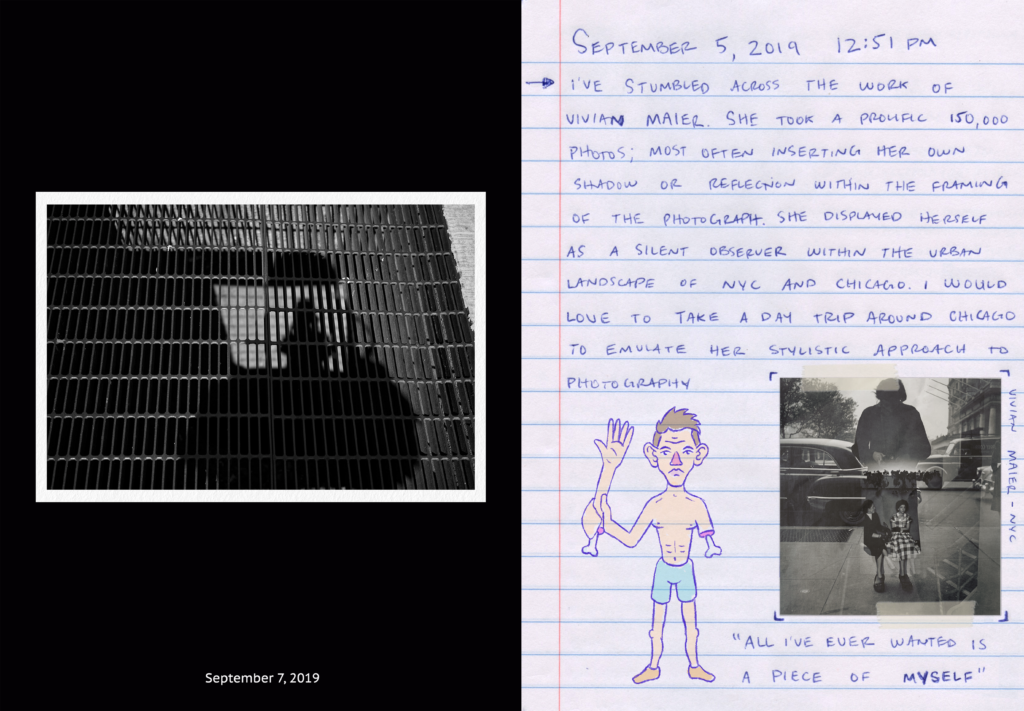 September 7, 2019
SEPTEMBER 5, 2019 12:51 PM
I'VE STUMBLED ACROSS THE WORK OF
VIVIAN MAIER. SHE TOOK A PROLIFIC 150,000
PHOTOS; MOST OFTEN INSERTING HER OWN
SHADOW OR REFLECTION WITHIN THE FRAMING
OF THE PHOTOGRAPH. SHE DISPLAYED HERSELF
AS A SILENT OBSERVER WITHIN THE URBAN
LANDSCAPE OF NYC AND CHICAGO. I WOULD
LOVE TO TAKE A DAY TRIP AROUND CHICAGO
TO EMULATE HER STYLISTIC APPROACH TO
PHOTOGRAPHY
VIVIAN MAIER - NYC
"ALL I'VE EVER WANTED IS
A PIECE OF MYSELF"